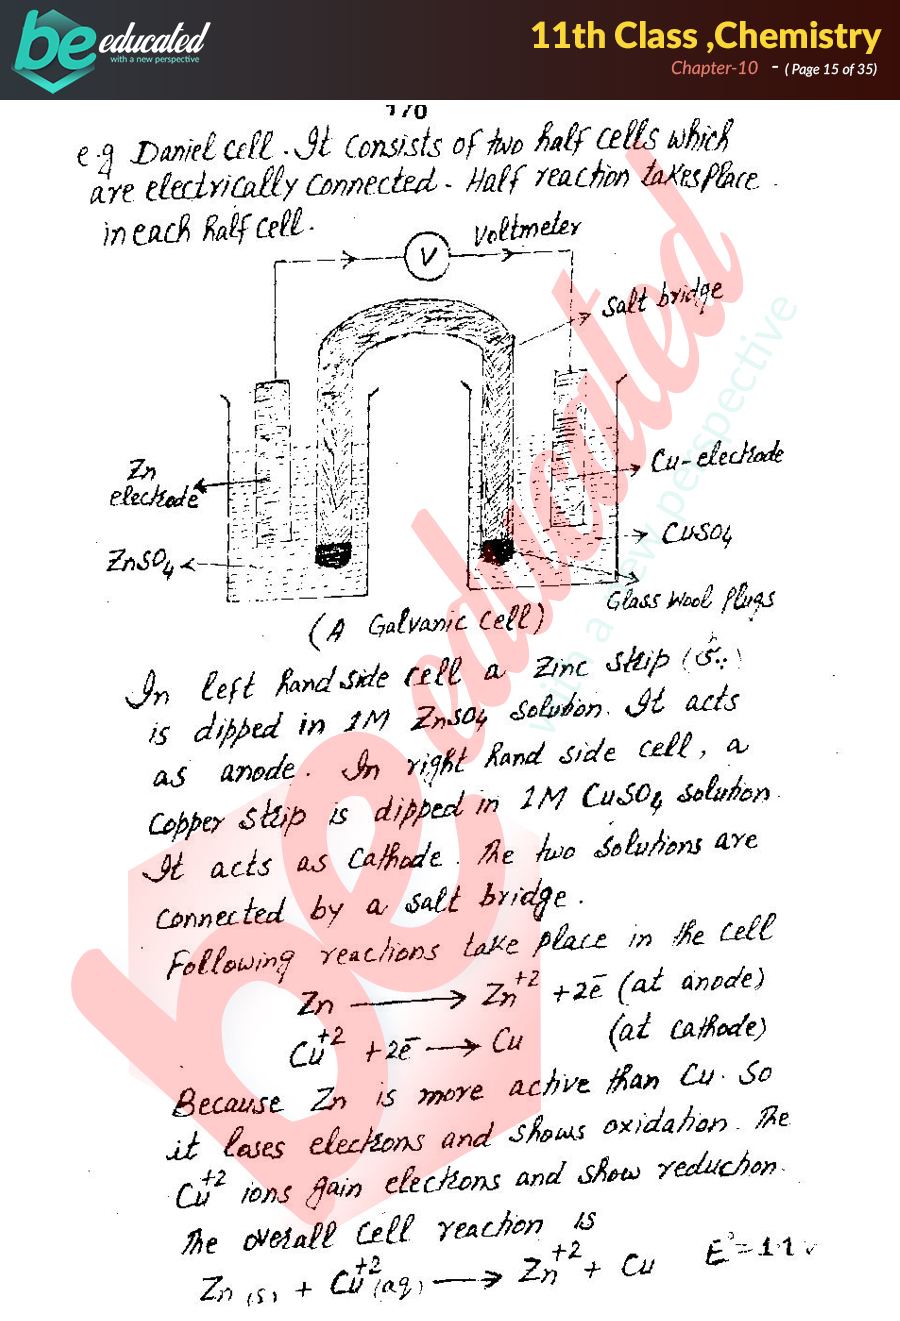 be educated
with a new perspective
11th Class ,Chemistry
Chapter-10 - ( Page 15 of 35)
e.g Daniel cell. It consists of two half cells which
are electrically connected. Half reaction takes place
in each half cell.
V
Voltmeter
Salt bridge
Zn
electrode
Cu-electrode
ZnSO4
CuSO4
Glass wool Plugs
(A Galvanic Cell)
In left hand side cell a Zinc strip
is dipped in 1M ZnSO4 solution. It acts
as anode. In right hand side cell, a
Copper strip is dipped in 1M CuSO4 solution.
It acts as Cathode. The two solutions are
connected by a salt bridge.
Following reactions take place in the cell
Zn ⟶ Zn+2 + 2e̅ (at anode)
Cu+2 + 2e̅ ⟶ Cu (at cathode)
Because Zn is more active than Cu. So
it loses electrons and shows oxidation. The
Cu+2 ions gain electrons and show reduction.
The overall cell reaction is
Zn(s) + Cu+2(aq) ⟶ Zn+2 + Cu E°=1.1 v
be educated
with a new perspective